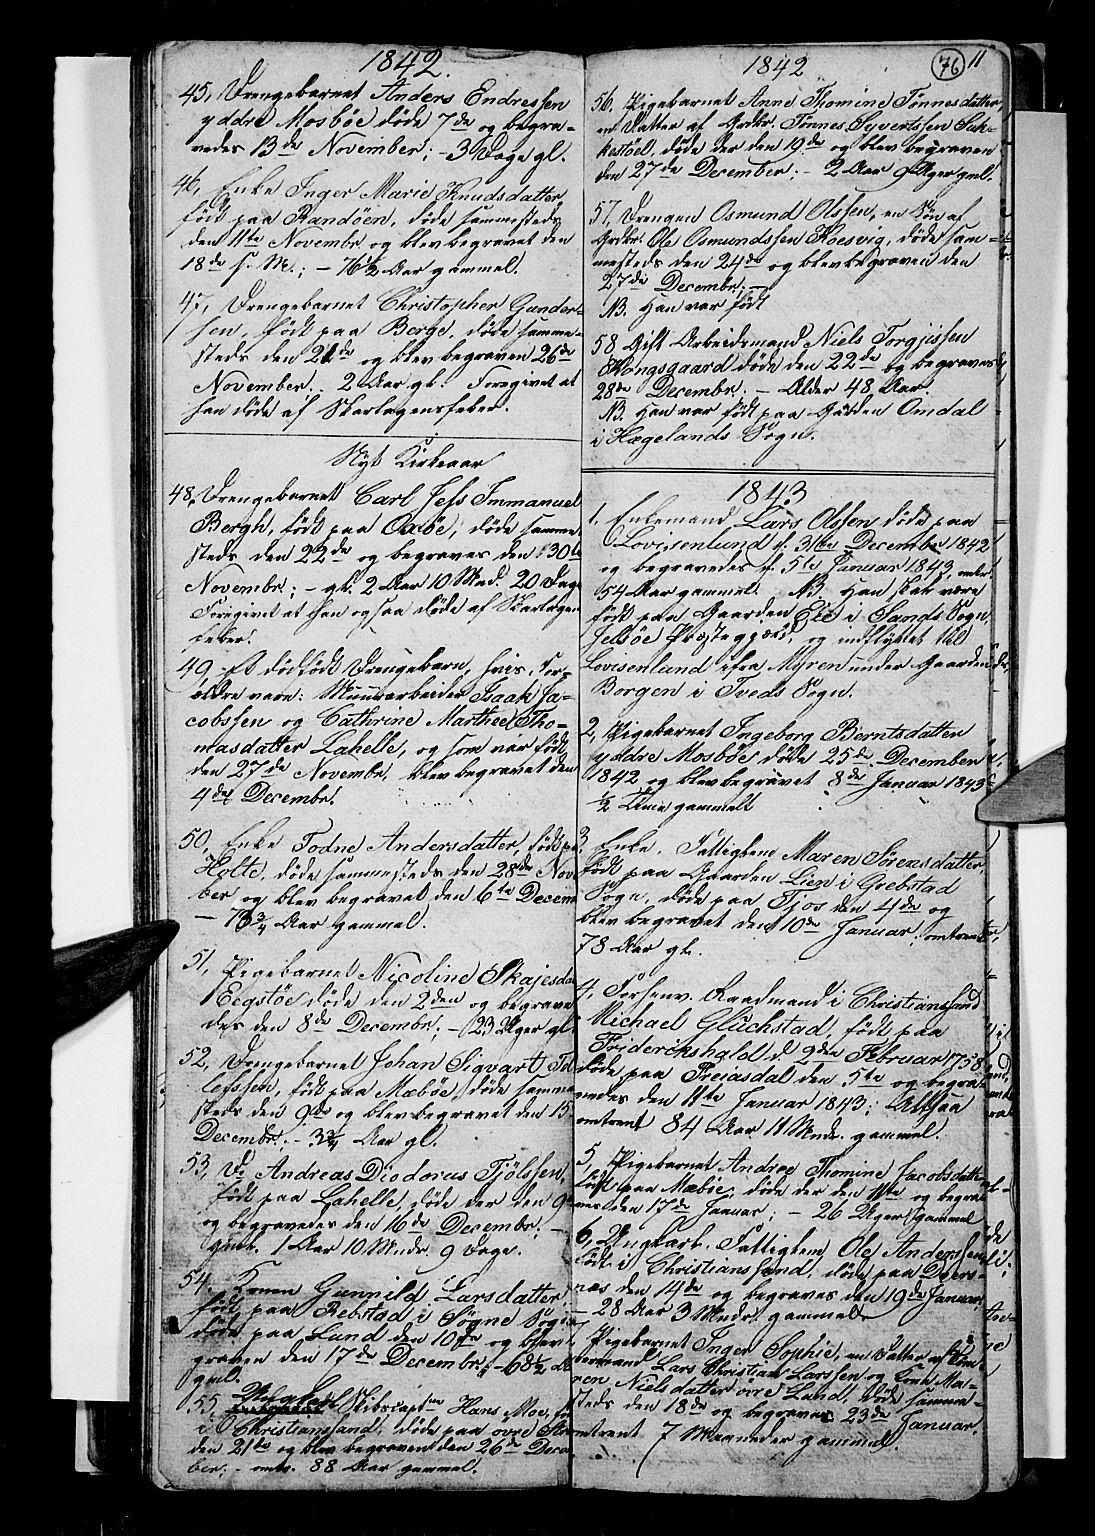 1842.
45, Drengebarnet Anders Endressen
yddre Mosbøe døde 7de og begra-
vedes 13de November; - 3 Dage gl.
46, Enke Inger Marie Knudsdatter,
født paa Randøen, døde sammesteds
den 11te Novembr. og blev begravet den
18de s. M.; - 76½ Aar gammel.
47, Drengebarnet Christopher Gunder-
sen, født paa Berge, døde samme-
steds den 21de og blev begraven 26de
November. 2 Aar gl. Foregivet at
han døde af Skarlagensfeber.
Nyt Kirkeaar
48, Drengebarnet Carl Jess Immanuel
Bergh, født paa Oxøe, døde samme
steds den 22de og begraves den 30te
Novembr.; - gl. 2 Aar 10 Mnd. 20 Dage
Foregivet at han ogsaa døde af Skarlagen
feber.
49, Et dødfødt Drengebarn, hvis For-
ældre vare: Muurarbeider Isaak Ja-
cobssen og Cathrine Marthea Tho-
masdatter Lahelle, og som var født
den 27de Novembr. blev begravet den
4de Decembr.
50, Enke Todne Andersdatter, født paa
Holte, døde sammesteds den 28de Nov
ber og blev begravet den 6te Decem
- 73¾ Aar gammel.
51, Pigebarnet Nicoline Skajesda
Eegstøe døde den 2den og begrave
des den 8de Decembr; - (23 Uger gl.
52, Drengebarnet Johan Sigvart To
lefssen, født paa Mæbøe, døde samme
steds den 9de og blev begravet den 15
Decembr. - 3¾ Aar gl.
53, D. Andreas Diodorus Tjølssen,
født paa Lahelle, døde der den 9de
og begravedes den 16de Decembr. -
gml. 1 Aar 10 Mndr. 9 Dage.
54. Konen Gunnild Larsdatter,
født paa Rebstad i Søgne Sogn
døde paa Lund den 10de og blev
graven den 17de Decembr; - 68½ A
gml.
55, Skibscaptn Hans Moe, fø
i Christianssand, døde paa øvre
den 21de og blev begraven den 26de Decm
ber; - omtr. 88 Aar gammel.
1842
76
11
56, Pigebarnet Anne Thomine Tønnesdatter
en Datter af Grdbr. Tønnes Syvertssen
døde der den 19de og blev begraven
den 27de December; - 2 Aar 9 Uger gml.
57, Drengen Osmund Olssen, en Søn af
Grdbr. Ole Osmundssen Kosvig, døde sam-
mesteds den 24de og blev begraven den
27de Decembr; -
NB. Han var født
58, Gift Arbeidsmand Niels Torgjussen
Kongsgaard døde den 22de og begraves
28de Decembr; - Alder 48 Aar.
NB. Han var født paa Gaarden Omdal
i Hægelands Sogn.
1843
1, Enkemand Lars Olssen døde paa
Lovisenlund d. 31te December 1842
og begravedes d. 5te Januar 1843, omtr.
54 Aar gammel. NB. Han skal være
født paa Gaarden Eie i Sands Sogn,
Jelsøe Præstegjæld, og indflyttet til
Lovisenlund ifra Myren under Gaarden
Borgen i Tveds Sogn.
2, Pigebarnet Ingeborg Berntsdatter
yddre Mosbøe døde 25de December
1842 og blev begravet 8de Januar 1843
½ Time gammelt
3, Enke, Fattiglem Maren Sørensdatter,
født paa Gaarden Lien i Grebstad
Sogn, døde paa Tjos den 4de og
blev begravet den 10de Januar, omtrent
78 Aar gl.
4, Forhenv. Raadmand i Christianssand
Michael Glückstad, født paa
Friderikshald d. 2den Februar 1758,
døde paa Preiasdal den 5te og begra-
vedes den 11te Januar 1843; Altsaa
omtrent 84 Aar 11 Mndr. gammel.
5, Pigebarnet Andrea Thomine Jacobsdatter
født paa Mæbøe, døde der den 11te og begra-
vedes den 17de Januar; - 26 Uger gammel
6, Ungkarl, Fattiglem Ole Anderssen
født i Christianssand, døde paa Dvers-
næs den 14de og begraves den 19de Januar
- 28 Aar 3 Mndr. gammel.
7, Pigebarnet Inger Sophie, en Datter af
Lars Christian Larssen og Kone Ma-
ren Nielsdatter øvre Lund, døde samme-
steds den 18de og begraves 23de Januar.
omtrent 7 Maaneder gammel.